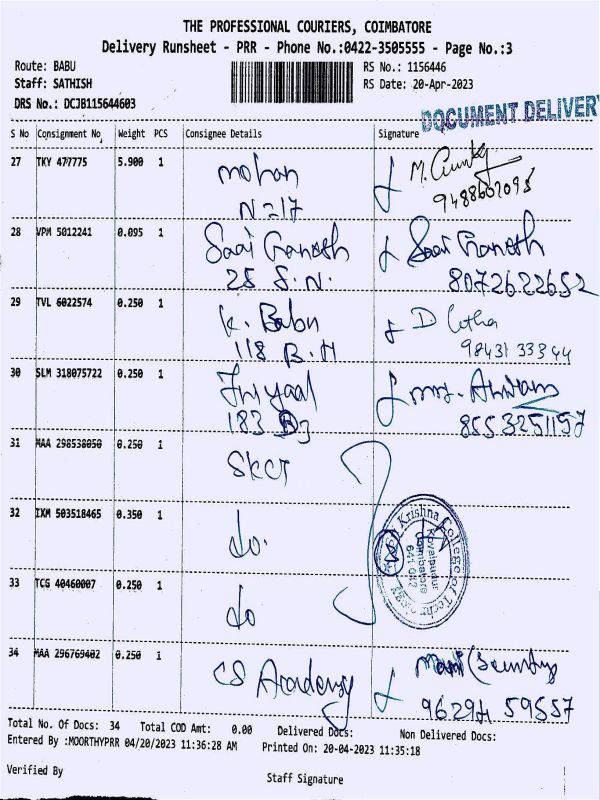 THE PROFESSIONAL COURIERS, COIMBATORE
Delivery Runsheet - PRR - Phone No.:0422-3505555 - Page No.:3
Route: BABU RS No.: 1156446
Staff: SATHISH RS Date: 20-Apr-2023
DRS No.: DCJB115644603
DOCUMENT DELIVERY
S No Consignment No Weight PCS Consignee Details Signature
27 TKY 477775 5.900 1 mohan
N=17 9488602095
28 VPM 5012241 0.095 1 Saai Ganesh Saai Ganesh
25 S.N. 8072622652
29 TVL 6022574 0.250 1 K. Babu D. Latha
118 B.H 98431 33344
30 SLM 318075722 0.250 1
183 8553251157
31 MAA 298538050 0.250 1 SKCT
32 IXM 503518465 0.350 1 do.
Krishna College of Tech
Kovaipudur
Coimbatore
641 042
33 TCG 40460007 0.250 1 do
34 MAA 296769402 0.250 1 CS Academy Mani (Security
96294 59557
Total No. Of Docs: 34 Total COD Amt: 0.00 Delivered Docs: Non Delivered Docs:
Entered By :MOORTHYPRR 04/20/2023 11:36:28 AM Printed On: 20-04-2023 11:35:18
Verified By Staff Signature